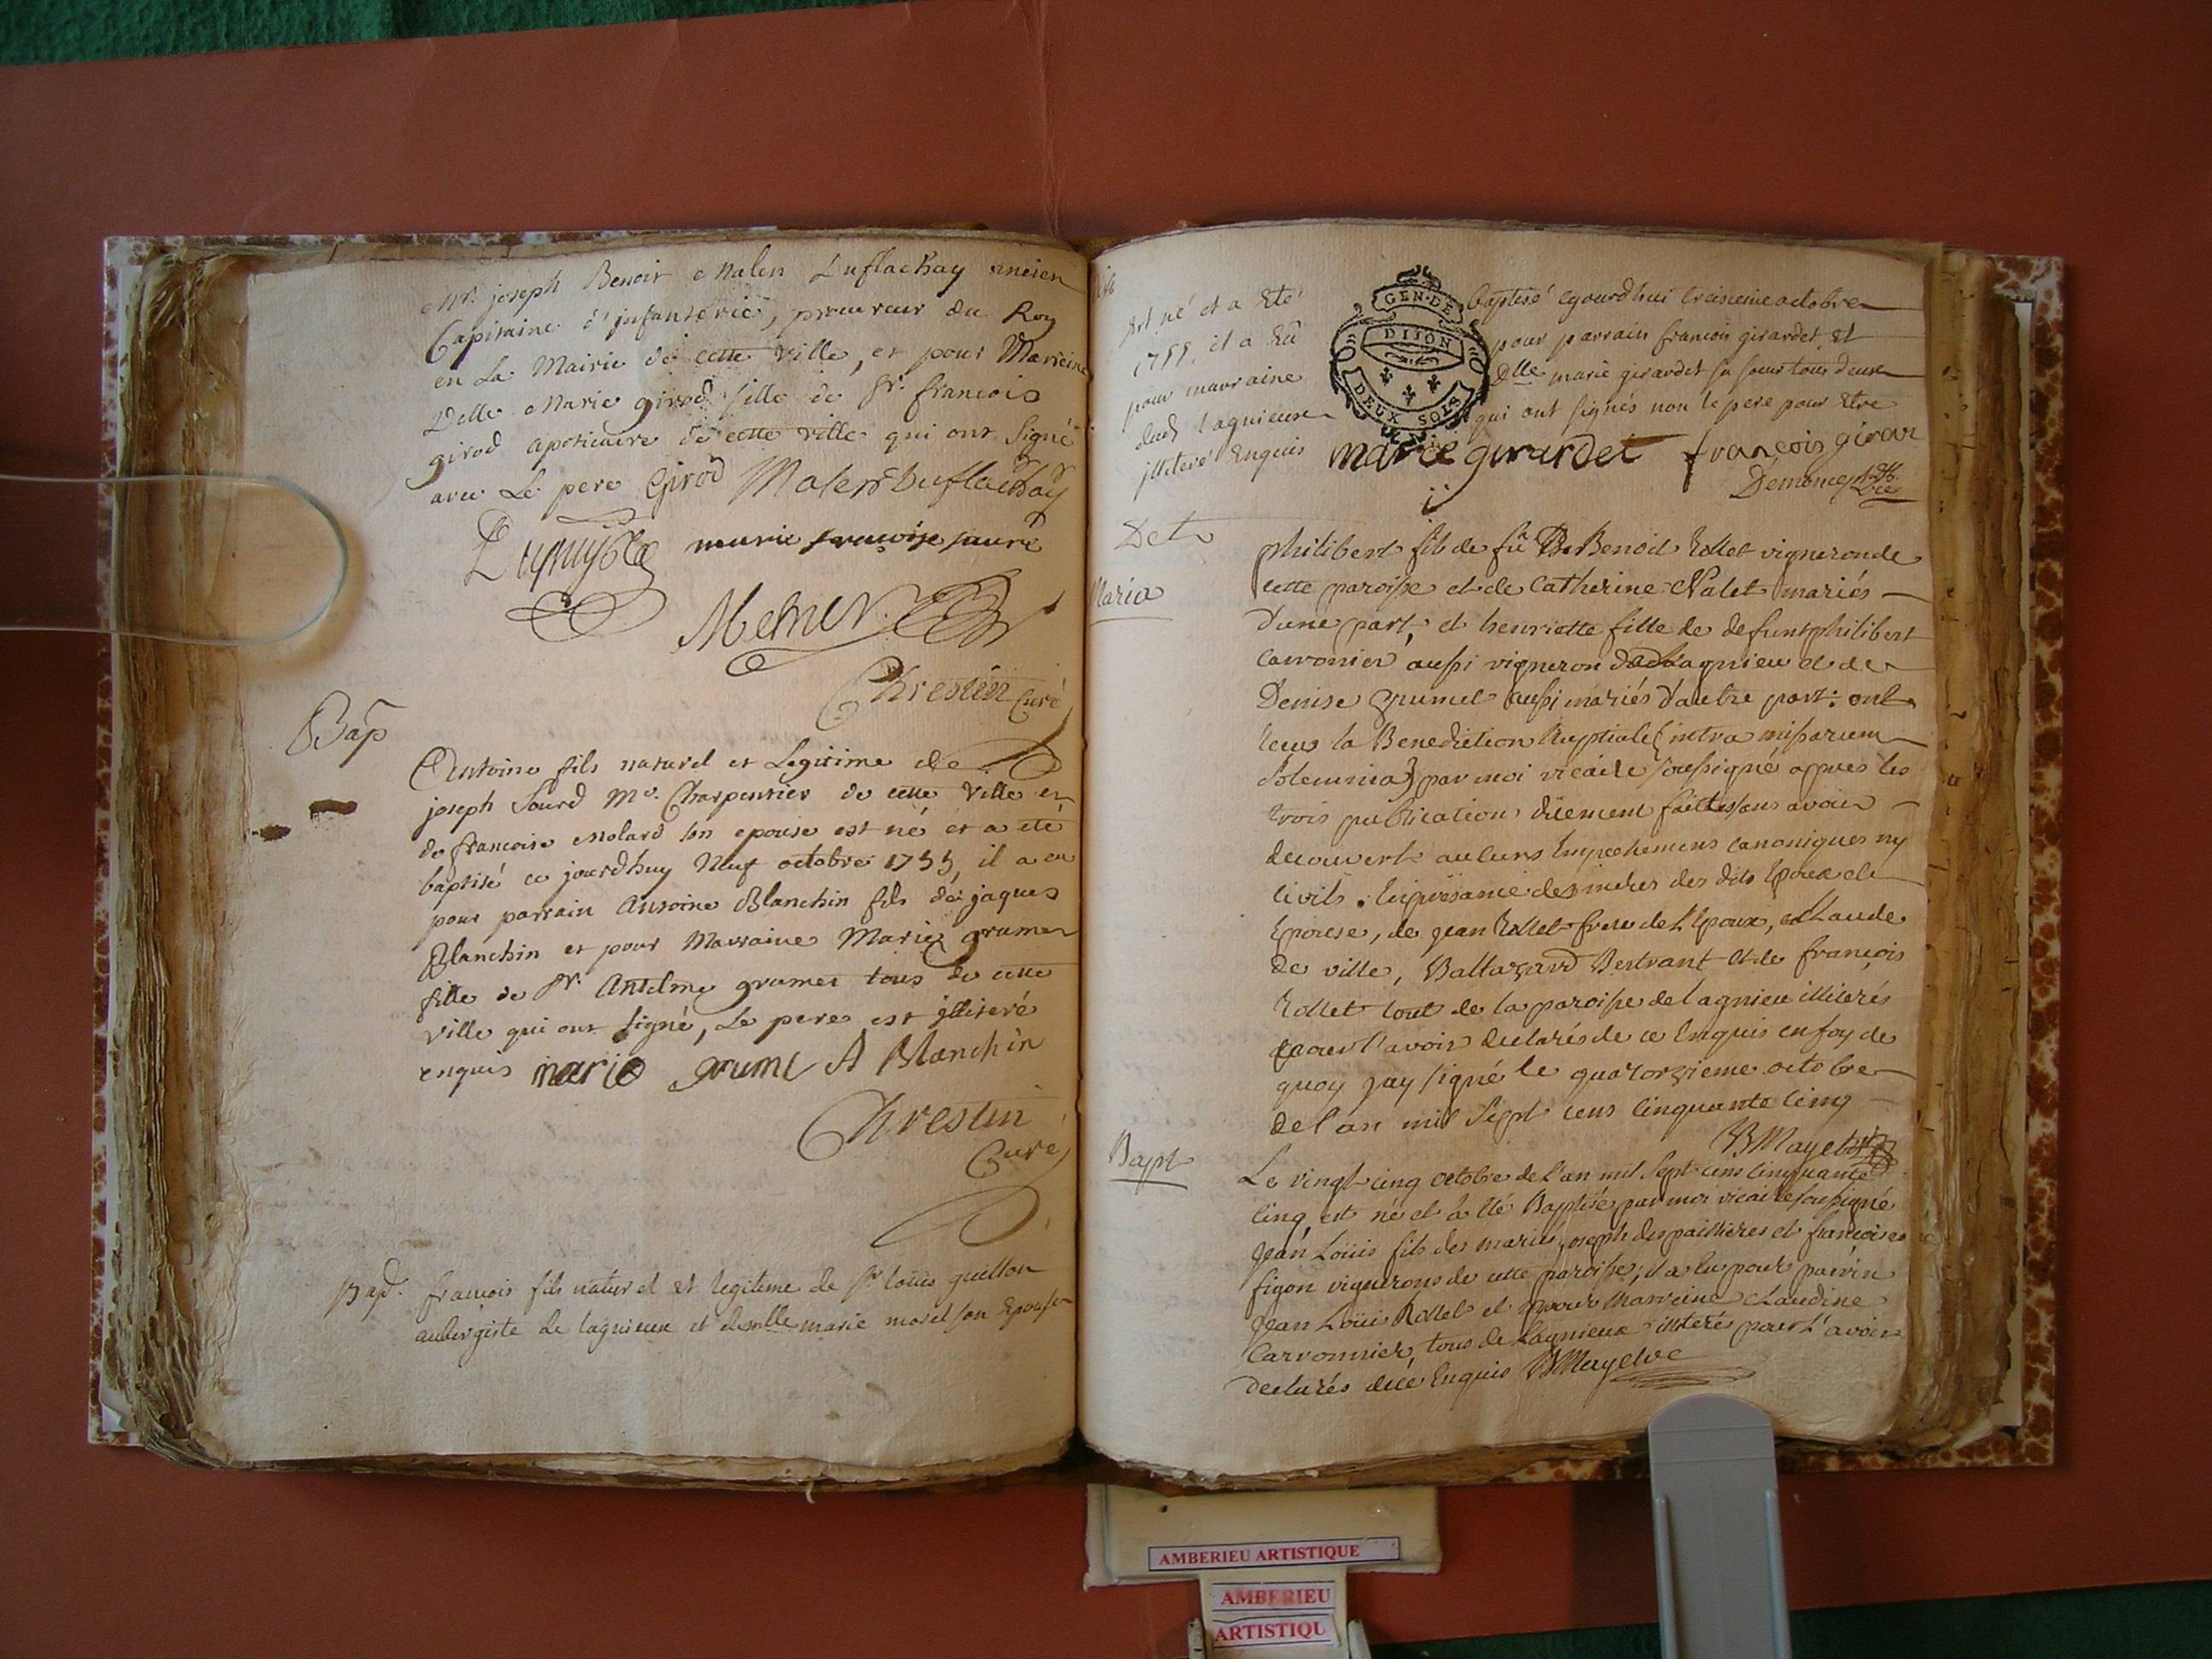 Mr. joseph Benoit Malen Duflachay ancien
Capitaine d'jnfanterie, procureur du Roy
en La Mairie de cette ville, et pour Mareine
Delle Marie girod fille de Sr. francois
girod apoticaire de cette ville qui ont Signé
avec Le pere Girod Malen Duflachay
marie francoise
Chrestin Curé
Bap
Antoine fils naturel et Legitime de
joseph Sourd Me. Charpentier de cette Ville et
de francoise Molard son epouse est né et a eté
baptisé ce jourdhuy Neuf octobre 1755, il a eu
pour parrain Antoine Blanchin fils de jaques
Blanchin et pour Marraine Marie grumet
fille de Sr. Antelme grumet tous de cette
ville qui ont signé, Le pere est jlliteré
enquis marie grume A Blanchin
Chrestin
Curé
Bap. francois fils naturel et legitime de Sr louis guillon
aubergiste de lagnieux et demlle marie morel son Epouse
est né et a Eté baptisé cejourdhui treisieme octobre
1755. il a Eû pour parrain francois girardet Et
pour marraine Dlle marie girardet sa soeur tous deux
dud lagnieux qui ont signés non le pere pour Etre
jlliteré Enquis marie girardet françois girar
GEN. DE
DIJON
DEUX SOLS
Maria
philibert fils de fû Benoit Rollet vigneron de
cette paroisse et de Catherine Nalet mariés
d'une part, et henriette fille de defunt philibert
Carronier aussi vigneron dud Lagnieu et de
Denise grumel aussi mariés d'autre part: ont
receus la Benediction Nuptiale (intra missarum
Solemnia) par moi vicaire soussigné appres les
trois publication düement faittes sans avoir
decouvert aucuns Empechemens canoniques ny
civils. En présance des meres des dits Epoux et
Epouse, de jean Rollet frere de l'Epoux, et Claude
de ville, Baltazard Bertrant et de françois
Rollet tout de la paroisse de lagnieu illiterés
pour l'avoir declarés de ce Enquis en foy de
quoy jay signé le quatorzieme octobre
de l'an mil Sept cens Cinquante Cinq
B Mayet
Bapt
Le vingt-cinq octobre de l'an mil Sept cens Cinquante
Cinq est né et à été Baptisé par moi vicaire soussigné
jean Loüis fils des mariés joseph despaillieres et françoise
figon vignerons de cette paroisse; il a Eu pour parrin
jean Loüis Rollet et pour Marreine Claudine
Carronnier, tous de Lagnieux illiterés pour l'avoir
declarés de ce Enquis B Mayet vic
AMBERIEU ARTISTIQUE
AMBERIEU
ARTISTIQU